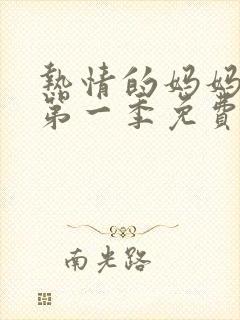 熱情的妈妈
第一季免費
南光路